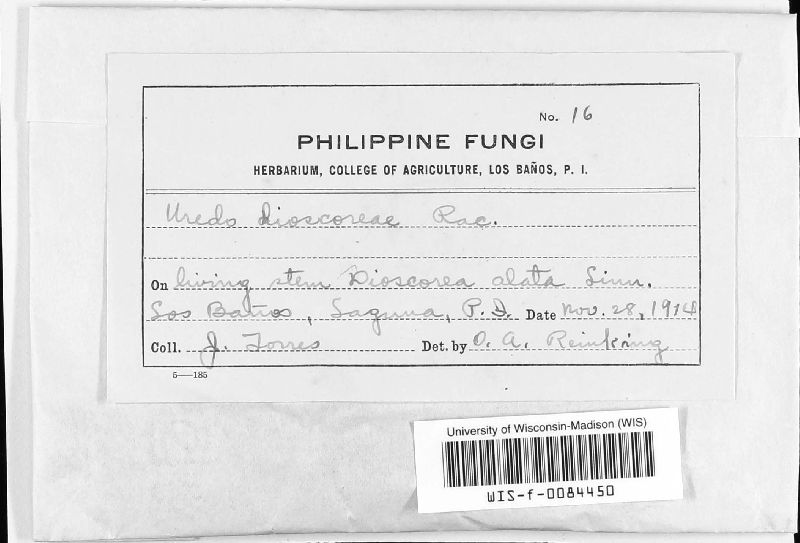 No. 16
PHILIPPINE FUNGI
HERBARIUM, COLLEGE OF AGRICULTURE, LOS BAÑOS, P. I.
Uredo dioscoreae Rac.
On living stem Dioscorea alata Linn.
Los Baños, Laguna, P. I. Date Nov. 28, 1914
Coll. J. Torres Det. by O. A. Reinking
5—185
University of Wisconsin-Madison (WIS)
WIS-f-0084450